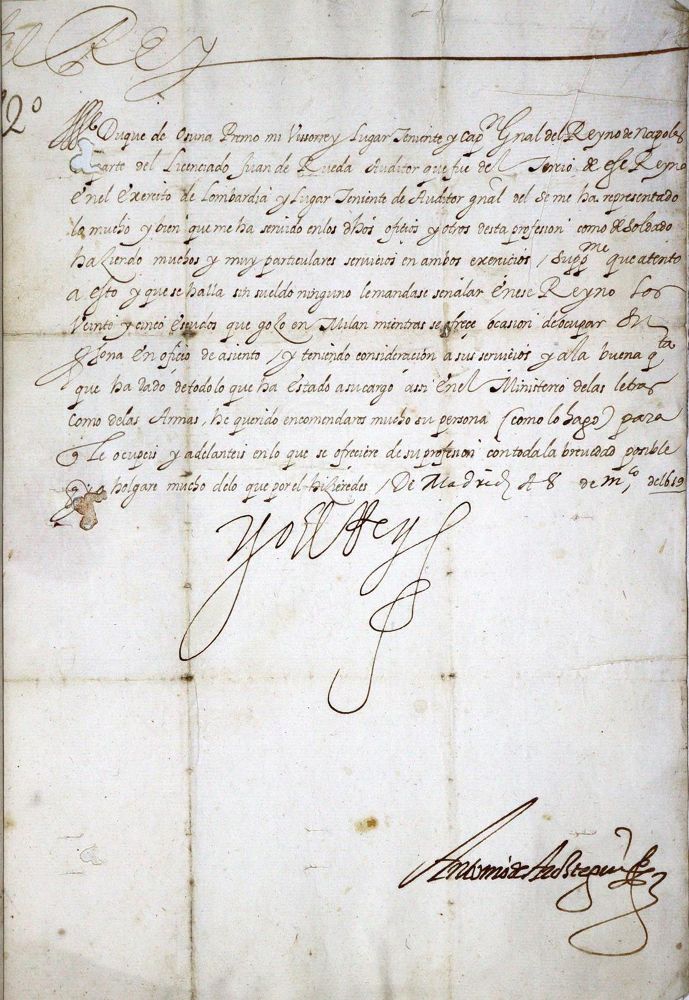 El Rey
2º
Duque de Osuna Primo mi Vissorrey Lugar Teniente y Capn Gnal del Reyno de Napoles
parte del Licenciado Juan de Rueda Auditor que fue del Tercio de ese Reyno
En el Exercito de Lombardia y Lugar Teniente de Auditor gnal del se me ha representado
lo mucho y bien que me ha servido en los dhos oficios y otros desta profesion como de soldado
haziendo muchos y muy particulares servicios en ambos exercicios, suppme que atento
a esto y que se halla sin sueldo ninguno le mandase señalar en ese Reyno los
Veinte y cinco escudos que gozo en Milan mientras se ofrece ocasion de ocupar su
psona en oficio de asiento, y teniendo consideracion a sus servicios y a la buena qta
que ha dado de todo lo que ha estado a su cargo assi en el Ministerio de las letras
como de las Armas, he querido encomendaros mucho su persona (como lo hago) para
q le ocupeis y adelanteis en lo que se ofreciere de su profesion con toda la brevedad posible
holgare mucho de lo que por el hizieredes, De Madrid A 8 de mço de 1619
Yo el Rey
Antonio de Arostegui